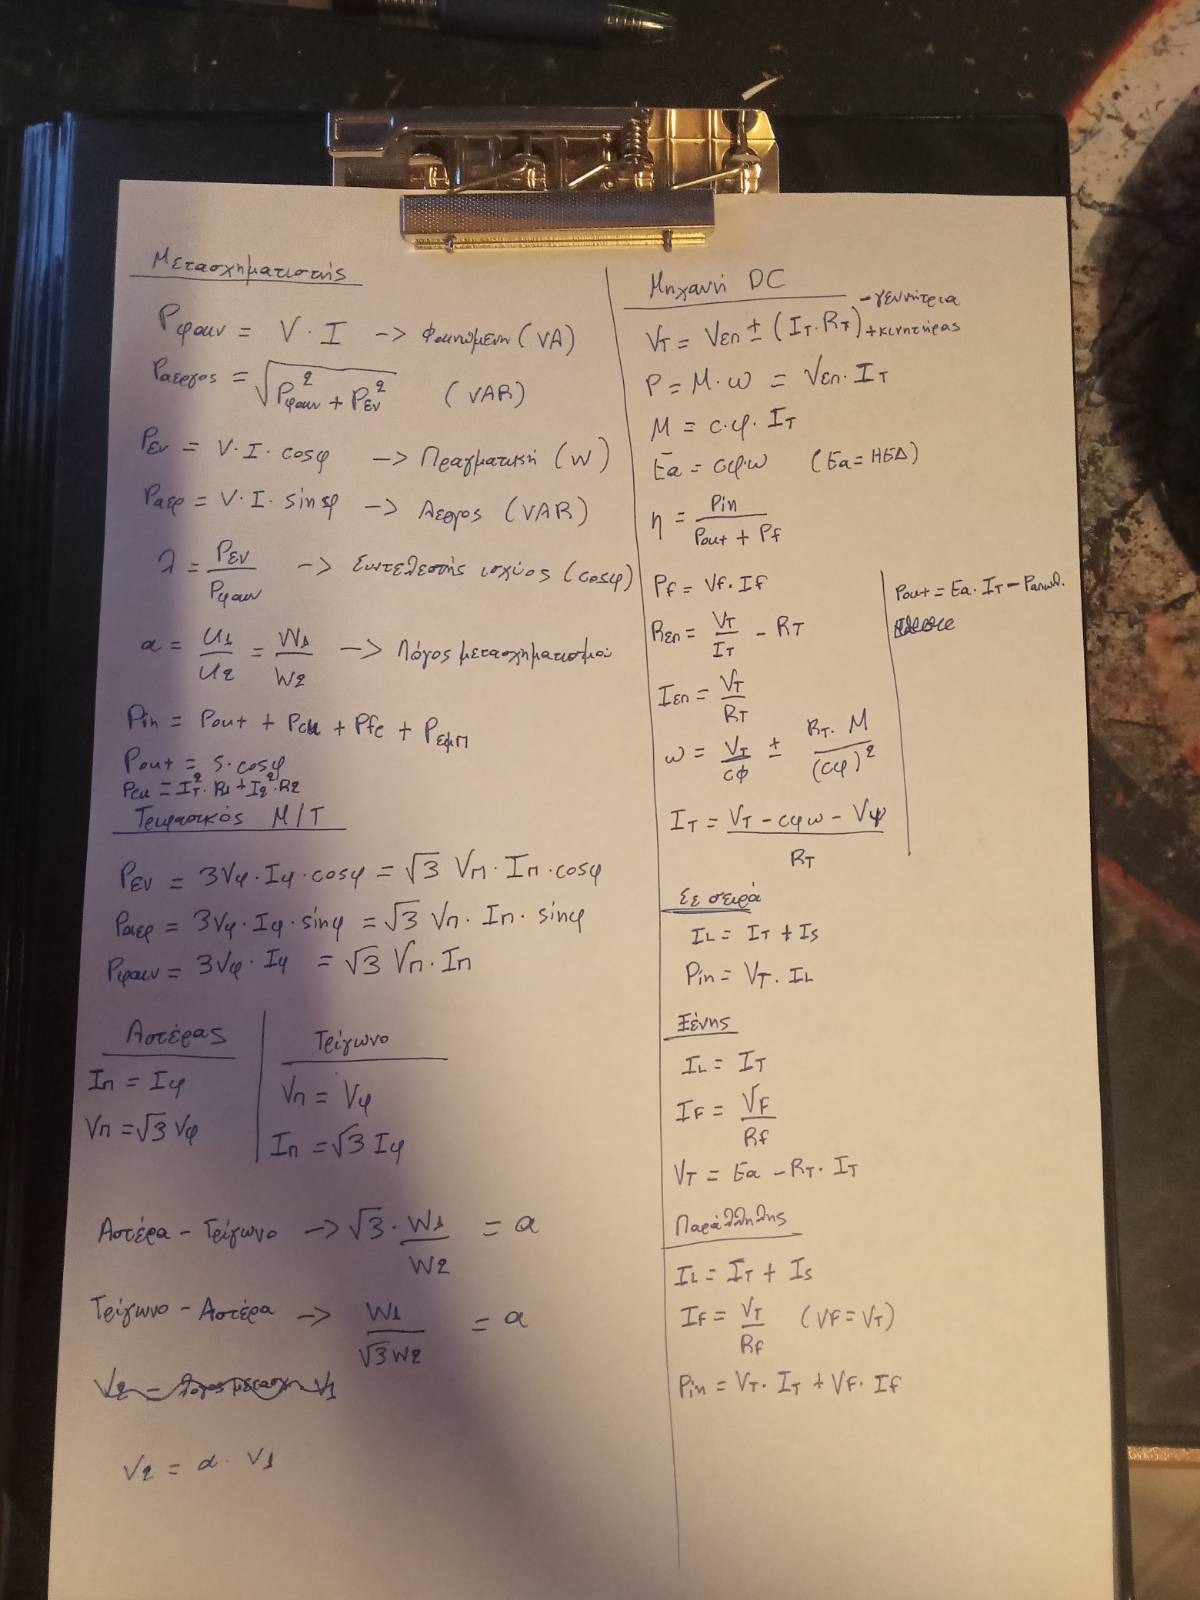 Μετασχηματιστής
Pφαιν = V · I -> Φαινόμενη (VA)
Pαεργος = √(Pφαιν² + Pεν²) (VAR)
Pεν = V · I · cosφ -> Πραγματική (W)
Pαερ = V · I · sinφ -> Αεργος (VAR)
λ = Pεν / Pφαιν -> Συντελεστής ισχύος (cosφ)
α = U1 / U2 = W1 / W2 -> Λόγος μετασχηματισμού
Pin = Pout + Pcu + Pfe + Pεφπ
Pout = S · cosφ
Pcu = IT² · R1 + I2² · R2
Τριφασικός Μ/Τ
Pεν = 3Vφ · Iφ · cosφ = √3 Vπ · Iπ · cosφ
Pαερ = 3Vφ · Iφ · sinφ = √3 Vπ · Iπ · sinφ
Pφαιν = 3Vφ · Iφ = √3 Vπ · Iπ
Αστέρας
Iπ = Iφ
Vπ = √3 Vφ
Τρίγωνο
Vπ = Vφ
Iπ = √3 Iφ
Αστέρα - Τρίγωνο -> √3 · W1 / W2 = α
Τρίγωνο - Αστέρα -> W1 / √3 W2 = α
V2 = λογος μετασχ V1
V2 = α · V1
Μηχανή DC
VT = Vεπ ± (IT · RT) - γεννήτρια + κινητήρας
P = M · ω = Vεπ · IT
M = c · φ · IT
Ea = cφ · ω (Ea = ΗΕΔ)
η = Pin / Pout + Pf
Pf = Vf · If
Rεπ = VT / IT - RT
Iεπ = VT / RT
ω = VT / cφ ± RT · M / (cφ)²
IT = VT - cφω - Vψ / RT
Pout = Ea · IT - Pαπωλ.
Σε σειρά
IL = IT + Is
Pin = VT · IL
Ξένης
IL = IT
IF = VF / Rf
VT = Ea - RT · IT
Παράλληλης
IL = IT + Is
IF = VT / Rf (VF = VT)
Pin = VT · IT + VF · If